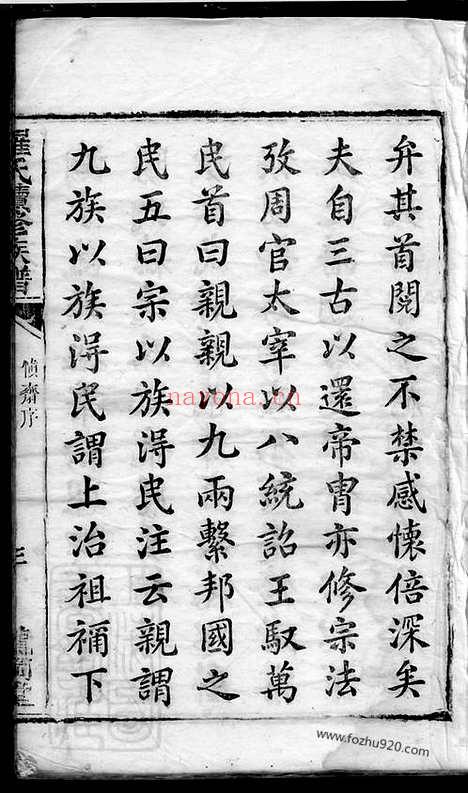 弁其首閱之不禁感懷倍深矣
夫自三古以還帝胄亦修宗法
攷周官太宰以八統詔王馭萬
民首曰親親以九兩繫邦國之
民五曰宗以族淂民注云親謂
九族以族淂民謂上治祖禰下
羅氏續修族譜
偵齋序
nayona.cn
www.fozhu920.com